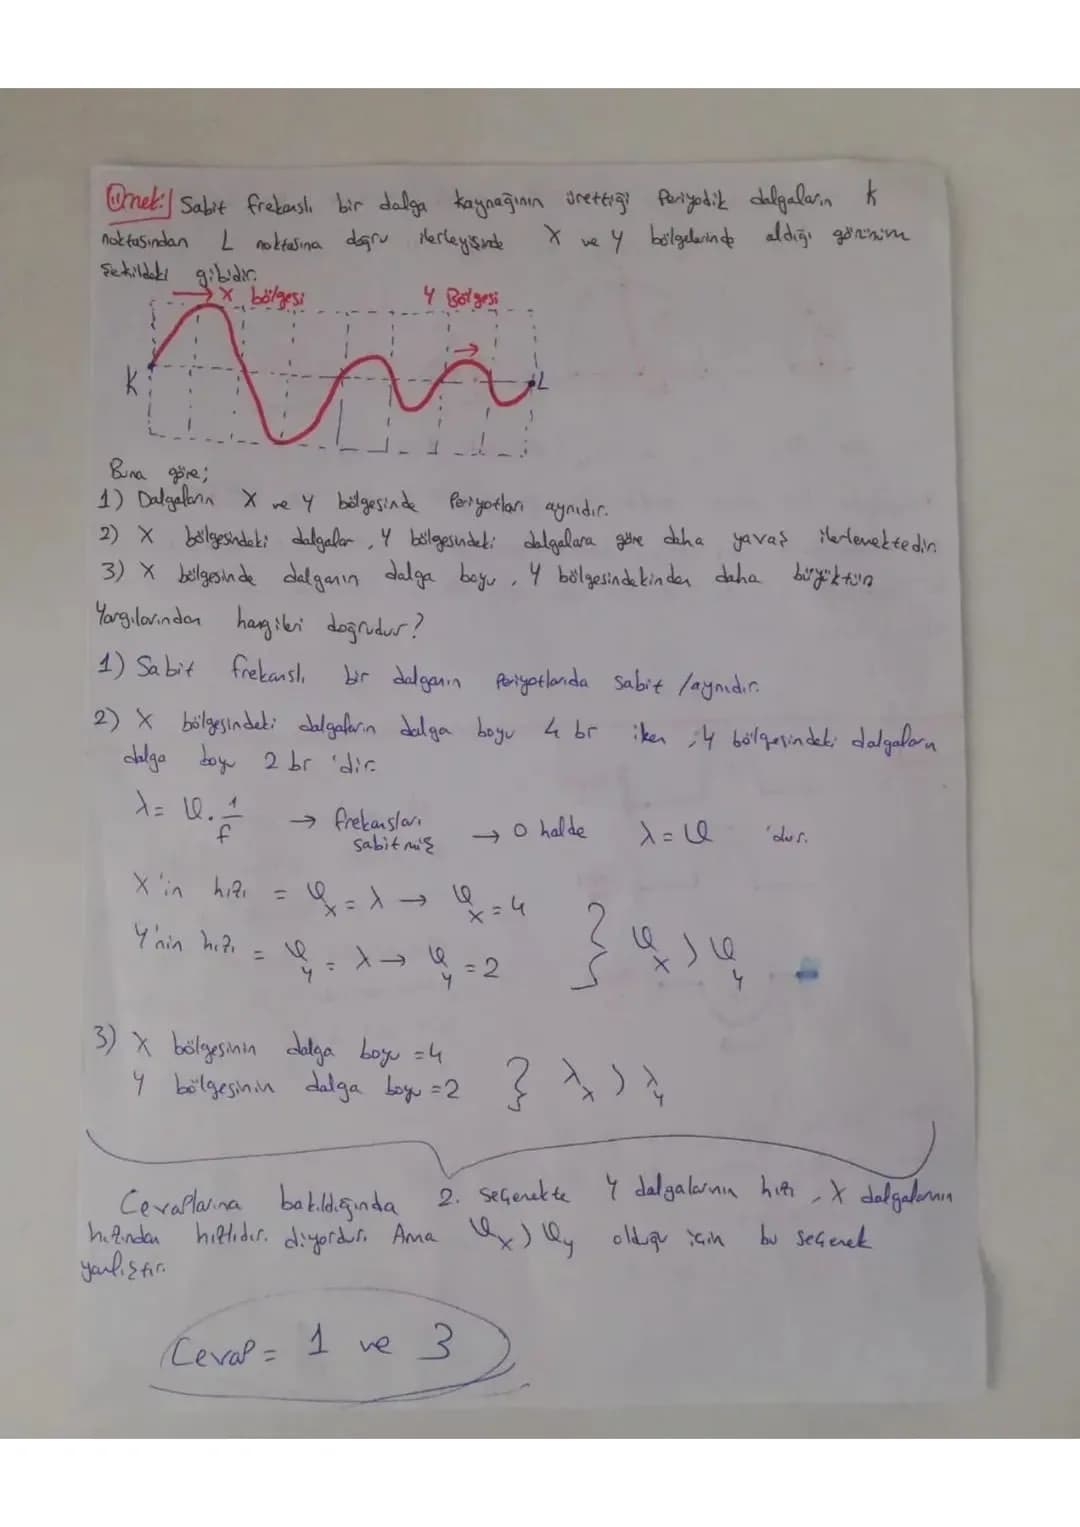 Örnek: Sabit frekanslı bir dalga kaynağının ürettiği Periyodik dalgaların K
noktasından L noktasına doğru ilerleyişinde X ve Y bölgelerinde aldığı görünüm
Şekildeki gibidir.
→ X bölgesi Y Bölgesi
→
K L
Buna göre;
1) Dalgaların X ve Y bölgesinde Periyotları aynıdır.
2) X bölgesindeki dalgalar, Y bölgesindeki dalgalara göre daha yavaş ilerlemektedir.
3) X bölgesinde dalganın dalga boyu, Y bölgesindekinden daha büyüktür.
Yargılarından hangileri doğrudur?
1) Sabit frekanslı bir dalganın Periyotlarıda sabit / aynıdır.
2) X bölgesindeki dalgaların dalga boyu 4 br iken, Y bölgesindeki dalgaların
dalga boyu 2 br 'dir.
λ = ϑ . 1/f → frekansları sabitmiş → O halde λ = ϑ 'dur.
X'in hızı = ϑx = λ → ϑx = 4
Y'nin hızı = ϑy = λ → ϑy = 2 } ϑx > ϑy
3) X bölgesinin dalga boyu = 4
Y bölgesinin dalga boyu = 2 } λx > λy
Cevaplarına bakıldığında 2. seçenekte Y dalgalarının hızı, X dalgalarının
hızından hızlıdır. diyordur. Ama ϑx > ϑy olduğu için bu seçenek
yanlıştır.
Cevap = 1 ve 3